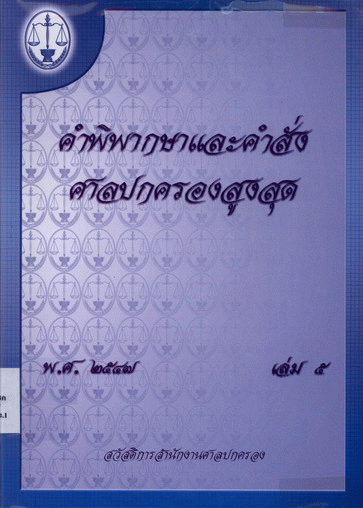 คำพิพากษาและคำสั่ง
ศาลปกครองสูงสุด
พ.ศ. ๒๕๔๗ เล่ม ๕
สวัสดิการสำนักงานศาลปกครอง